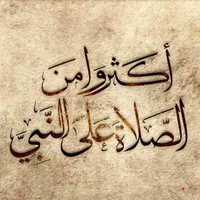 أكثروا من
الصلاة على النبيّ